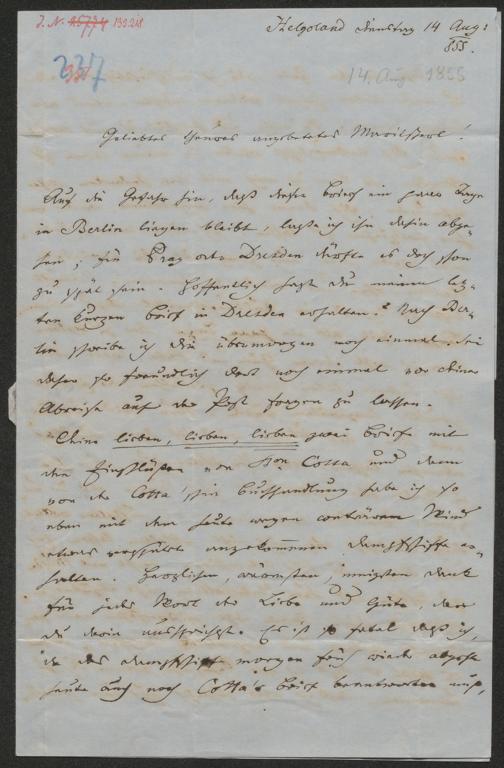 J. N. 25774 139.248
237
Helgoland Dienstag 14 Aug:
855.
14. Aug 1855
Geliebtes theures angebetetes Marilherl!
Auf die Gefahr hin, daß dieser Brief ein paar Tage
in Berlin liegen bleibt, laße ich ihn dahin abge-
hen; für Prag oder Dresden dürfte es doch schon
zu spät sein. Hoffentlich hast du meinen letz-
ten kurzen Brief in Dresden erhalten? Nach Ber-
lin schreibe ich dir übermorgen noch einmal, sei
daher so freundlich dort noch einmal vor deiner
Abreise auf der Post fragen zu lassen.
Deine lieben, lieben, lieben zwei Briefe mit
den Einschlüßen von Cotta und dann
von der Cotta'schen Buchhandlung habe ich so
eben mit dem heute wegen conträrem Wind
etwas verspätet angekommenen Dampfschiffe er-
halten. Herzlichen, wärmsten, innigsten Dank
für jedes Wort der Liebe und Güte, das
du darin aussprichst. Es ist so fatal daß ich,
da das Dampfschiff morgen früh wieder abgeht
heute auch noch Cotta's Brief beantworten muß,